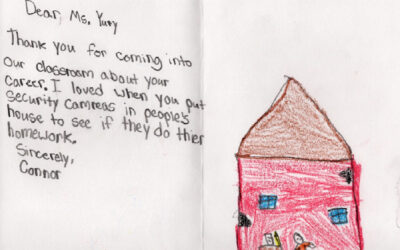 Dear, Ms. Yury
Thank you for coming into
our classroom about your
career. I loved when you put
security camreas in people's
house to see if they do thier
homework.
Sincerely,
Connor